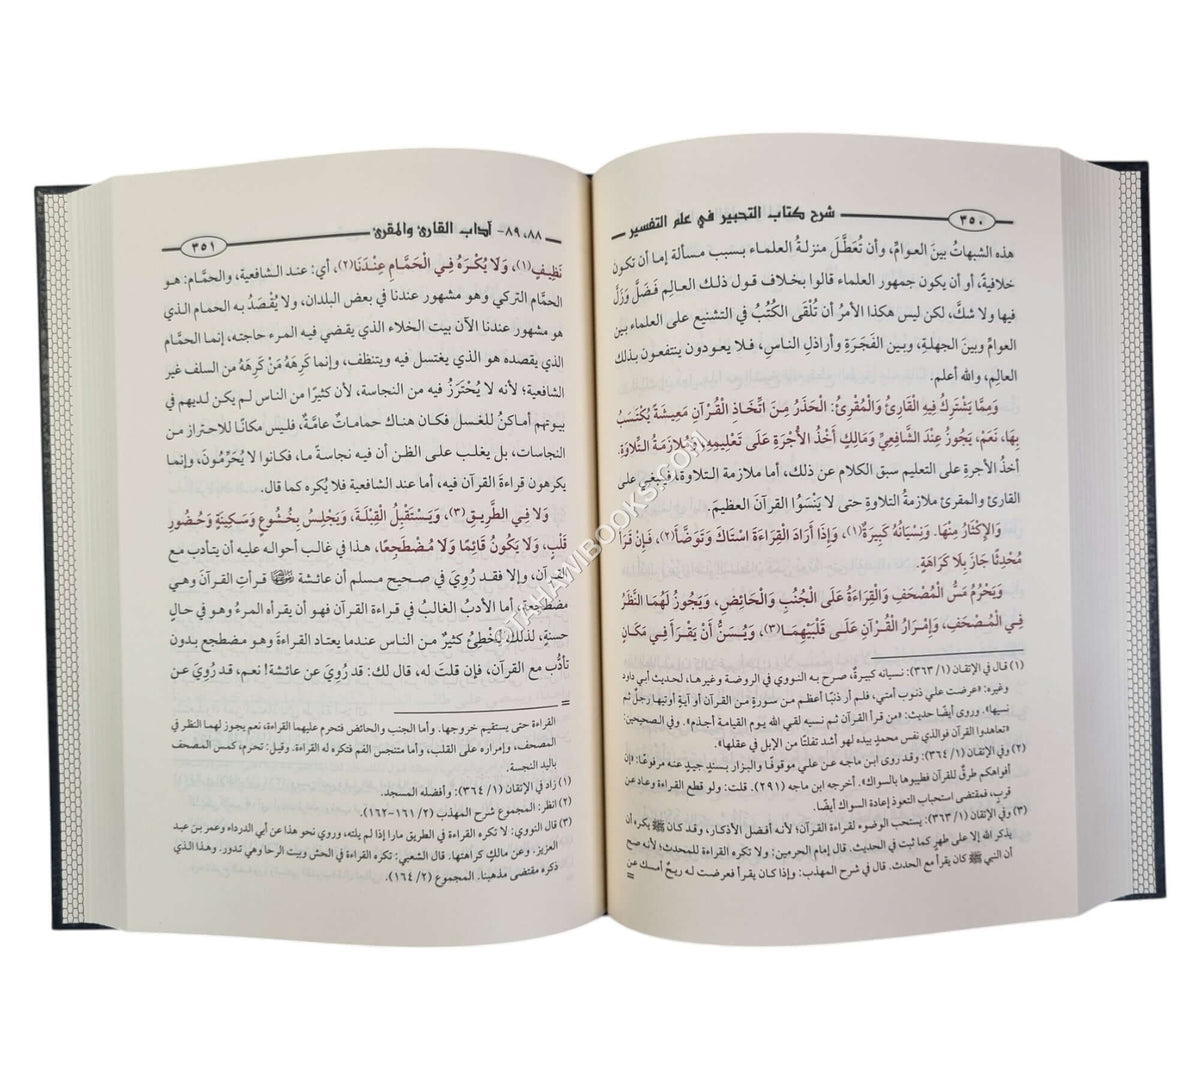 ٣٥٠
شرح كتاب التحبير في علم التفسير
هذه الشبهاتُ بينَ العوامِّ، وأن تُعَطَّلَ منزلةُ العلماء بسبب مسألة إما أن تكون
خلافيةً، أو أن يكون جمهور العلماء قالوا بخلاف قول ذلك العالِم فَضَلَّ وَزَلَّ
فيها ولا شكَّ، لكن ليس هكذا الأمرُ أن تُلْقَى الكُتُبُ في التشنيع على العلماء بين
العوامِّ وبينَ الجهلةِ، وبين الفَجَرَةِ وأراذلِ الناسِ، فلا يعودون ينتفعون بذلك
العالِمِ، والله أعلم.
وَمِمَّا يَشْتَرِكُ فِيهِ الْقَارِئُ وَالْمُقْرِئُ: الْحَذَرُ مِنَ اتِّخَاذِ الْقُرْآنِ مَعِيشَةً يُكْتَسَبُ
بِهَا، نَعَمْ، يَجُوزُ عِنْدَ الشَّافِعِيِّ وَمَالِكٍ أَخْذُ الْأُجْرَةِ عَلَى تَعْلِيمِهِ، مُلَازَمَةُ التِّلَاوَةِ.
أخذُ الأجرةِ على التعليم سبق الكلام عن ذلك، أما ملازمة التلاوة، فينبغي على
القارئ والمقرئ ملازمةُ التلاوةِ حتى لا يَنْسَوُا القرآنَ العظيمَ.
وَالْإِكْثَارُ مِنْهَا. وَنِسْيَانُهُ كَبِيرَةٌ(١)، وَإِذَا أَرَادَ الْقِرَاءَةَ اسْتَاكَ وَتَوَضَّأَ(٢)، فَإِنْ قَرَأَ
مُحْدِثًا جَازَ بِلَا كَرَاهَةٍ.
وَيَحْرُمُ مَسُّ الْمُصْحَفِ وَالْقِرَاءَةُ عَلَى الْجُنُبِ وَالْحَائِضِ، وَيَجُوزُ لَهُمَا النَّظَرُ
فِي الْمُصْحَفِ، وَإِمْرَارُ الْقُرْآنِ عَلَى قَلْبَيْهِمَا(٣)، وَيُسَنُّ أَنْ يَقْرَأَ فِي مَكَانٍ
(١) قال في الإتقان (١/ ٣٦٣): نسيانه كبيرةٌ، صرح به النووي في الروضة وغيرها، لحديث أبي داود
وغيره: «عرضت علي ذنوب أمتي، فلم أر ذنبًا أعظم من سورةٍ من القرآن أو آيةٍ أوتيها رجلٌ ثم
نسيها». وروى أيضًا حديث: «من قرأ القرآن ثم نسيه لقي الله يوم القيامة أجذم». وفي الصحيحين:
«تعاهدوا القرآن فوالذي نفس محمدٍ بيده لهو أشد تفلتًا من الإبل في عقلها».
(٢) وفي الإتقان (١/ ٣٦٤): وقد روى ابن ماجه عن علي موقوفًا والبزار بسندٍ جيدٍ عنه مرفوعًا: «إن
أفواهكم طرقٌ للقرآن فطيبوها بالسواك». أخرجه ابن ماجه (٢٩١). قلت: ولو قطع القراءة وعاد عن
قربٍ، فمقتضى استحباب التعوذ إعادة السواك أيضًا.
(٣) وفي الإتقان (١/ ٣٦٣): يستحب الوضوء لقراءة القرآن؛ لأنه أفضل الأذكار، وقد كان ﷺ يكره أن
يذكر الله إلا على طهرٍ كما ثبت في الحديث. قال إمام الحرمين: ولا تكره القراءة للمحدث؛ لأنه صح
أن النبي ﷺ كان يقرأ مع الحدث. قال في شرح المهذب: وإذا كان يقرأ فعرضت له ريحٌ أمسك عن
=
٨٨، ٨٩- آداب القارئ والمقرئ
٣٥١
نَظِيفٍ(١)، وَلَا يُكْرَهُ فِي الْحَمَّامِ عِنْدَنَا(٢)، أي: عند الشافعية، والحمَّام: هو
الحمَّام التركي وهو مشهور عندنا في بعض البلدان، ولا يُقْصَدُ به الحمام الذي
هو مشهور عندنا الآن بيت الخلاء الذي يقضي فيه المرء حاجته، إنما الحمَّام
الذي يقصده هو الذي يغتسل فيه ويتنظف، وإنما كَرِهَهُ مَنْ كَرِهَهُ من السلف غير
الشافعية؛ لأنه لا يُحْتَرَزُ فيه من النجاسة، لأن كثيرًا من الناس لم يكن لديهم في
بيوتهم أماكنُ للغسل فكان هناك حماماتٌ عامَّةٌ، فليس مكانًا للاحتراز من
النجاسات، بل يغلب على الظن أن فيه نجاسةً ما، فكانوا لا يُحَرِّمُونَ، وإنما
يكرهون قراءةَ القرآن فيه، أما عند الشافعية فلا يُكره كما قال.
وَلَا فِي الطَّرِيقِ(٣)، وَيَسْتَقْبِلُ الْقِبْلَةَ، وَيَجْلِسُ بِخُشُوعٍ وَسَكِينَةٍ وَحُضُورِ
قَلْبٍ، وَلَا يَكُونُ قَائِمًا وَلَا مُضْطَجِعًا، هذا في غالب أحواله عليه أن يتأدب مع
القرآن، وإلا فقد رُوِيَ في صحيح مسلم أن عائشة قرأتِ القرآنَ وهي
مضطجعة، أما الأدبُ الغالبُ في قراءة القرآن فهو أن يقرأه المرءُ وهو في حالٍ
حسنةٍ، لذلك يُخْطِئُ كثيرٌ من الناس عندما يعتاد القراءةَ وهو مضطجع بدون
تأدُّبٍ مع القرآن، فإن قلتَ له، قال لك: قد رُوِيَ عن عائشة! نعم، قد رُوِيَ عن
=
القراءة حتى يستقيم خروجها. وأما الجنب والحائض فتحرم عليهما القراءة، نعم يجوز لهما النظر في
المصحف، وإمراره على القلب، وأما متنجس الفم فتكره له القراءة. وقيل: تحرم، كمس المصحف
باليد النجسة.
(١) زاد في الإتقان (١/ ٣٦٤): وأفضله المسجد.
(٢) انظر: المجموع شرح المهذب (٢/ ١٦١-١٦٢).
(٣) قال النووي: لا تكره القراءة في الطريق مارا إذا لم يلته، وروي نحو هذا عن أبي الدرداء وعمر بن عبد
العزيز. وعن مالكٍ كراهتها. قال الشعبي: تكره القراءة في الحش وبيت الرحا وهي تدور. وهذا الذي
ذكره مقتضى مذهبنا. المجموع (٢/ ١٦٤).
ALTAHAWIBOOKS.COM